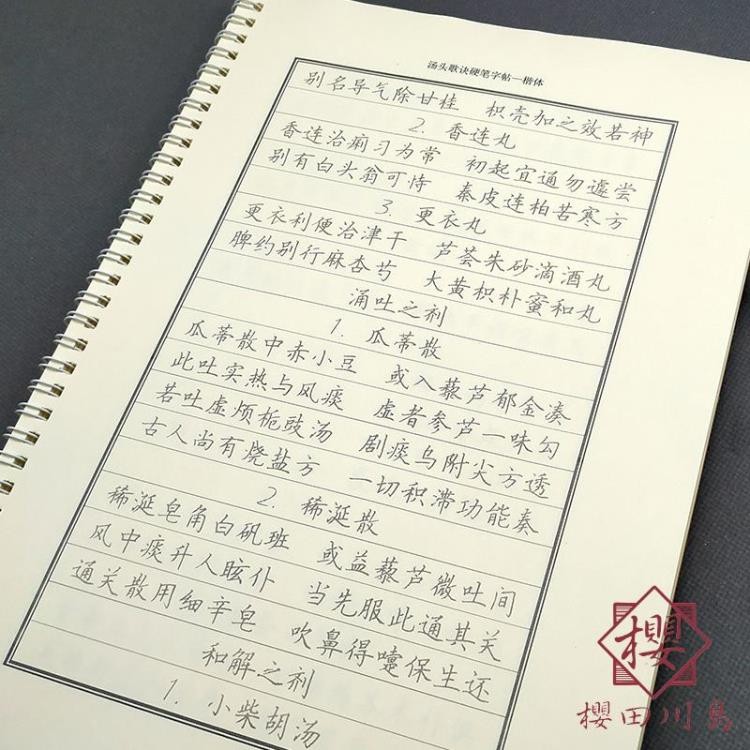 汤头歌诀硬笔字帖—楷体
别名导气除甘桂 枳壳加之效若神
2. 香连丸
香连治痢习为常 初起宜通勿遽尝
别有白头翁可恃 秦皮连柏苦寒方
3. 更衣丸
更衣利便治津干 芦荟朱砂滴酒丸
脾约别行麻杏芍 大黄枳朴蜜和丸
涌吐之剂
1. 瓜蒂散
瓜蒂散中赤小豆 或入藜芦郁金凑
此吐实热与风痰 虚者参芦一味勾
若吐虚烦栀豉汤 剧痰乌附尖方透
古人尚有烧盐方 一切积滞功能奏
2. 稀涎散
稀涎皂角白矾班 或益藜芦微吐间
风中痰升人眩仆 当先服此通其关
通关散用细辛皂 吹鼻得嚏保生还
和解之剂
1. 小柴胡汤
櫻
櫻田川島